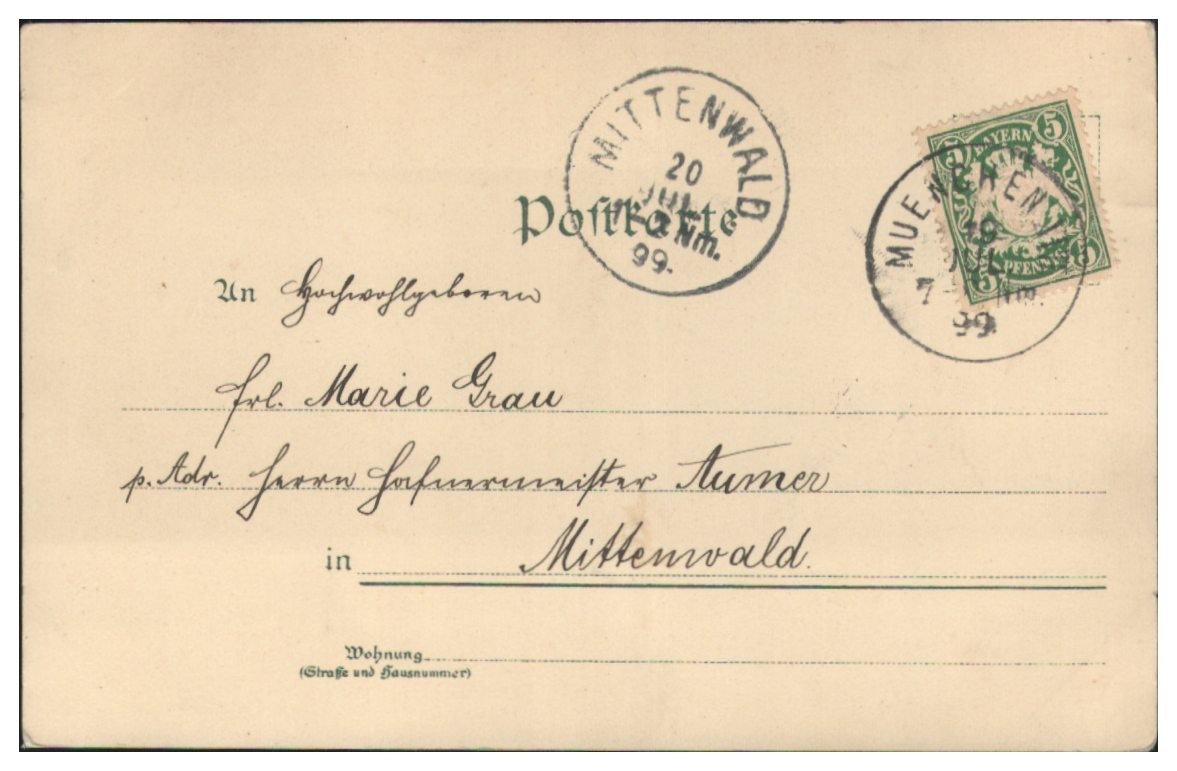 MITTENWALD
20
JUL.
Nm.
99.
BAYERN
5 5
PFENNIG
5 5
MUENCHEN
19
JUL
7 Nm.
99.
Postkarte
An Hochwohlgeboren
Frl. Marie Grau
p. Adr. Herrn Hafnermeister Aumer
in Mittenwald.
Wohnung
(Straße und Hausnummer)